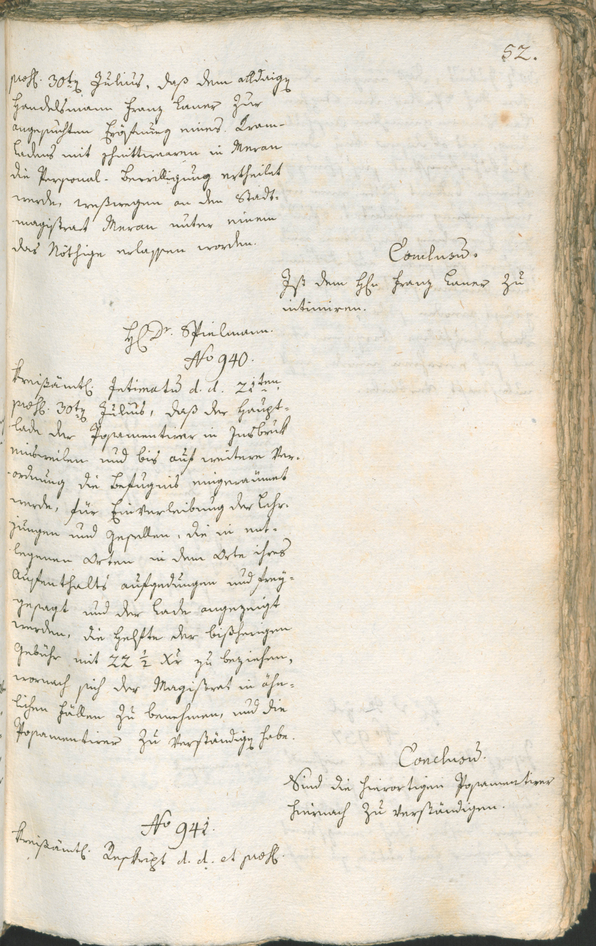 52.
praes. 30ten Julius, daß dem alldaigen
Handelsmann Franz Laner zur
angesuchten Eröfnung eines Kram-
Ladens mit Schnittwaaren in Meran
die Personal-Bewilligung ertheilet
werde, weßwegen an den Stadt-
magistrat Meran unter einem
das Nöthige erlassen worden.
Conclusū.
Ist dem Hℓn Franz Laner zu
intimiren.
Hℓ Dr. Spielmann.
No 940.
Kreisämtl. Intimatū d. d. 21ten
praes. 30ten Julius, daß der Haupt-
lade der Posamentirer in Insbruk
einsweilen und bis auf weitere Ver-
ordnung die Befugnis eingeraumet
werde, für Einverleibung der Lehr-
jungen und Gesellen, die in ent-
legenen Orten, in dem Orte ihres
Aufenthalts aufgedungen und frey-
gesagt und der Lade angezeigt
werden, die Helfte der bißherigen
Gebühr mit 22 ½ Xr zu beziehen,
wornach sich der Magistrat in ähn-
lichen Fällen zu benehmen, und die
Posamentirer zu verständigen habe.
Conclusū.
Sind die hierortigen Posamentirer
hiernach zu verständigen.
No 941.
Kreisämtl. Reskript d. d. et praes.